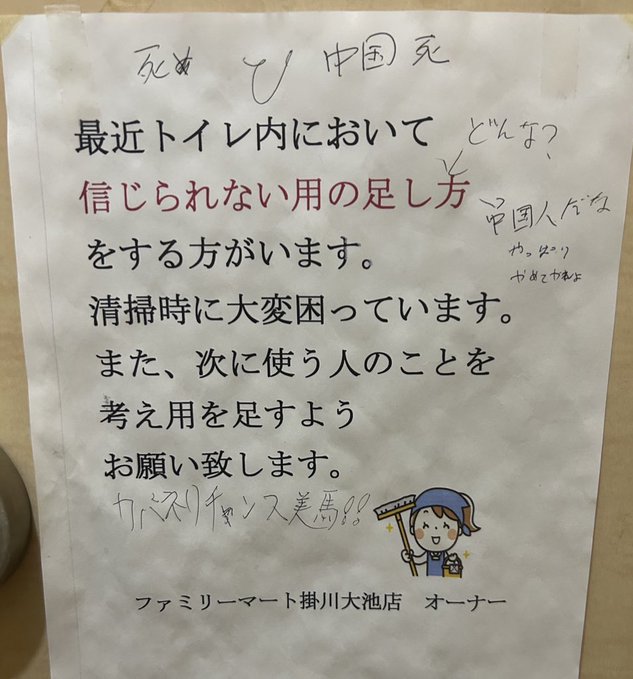 死ぬ
て
中国死
最近トイレ内において
どんな？
信じられない用の足し方
中国人だな
やっぱり
やめてくれよ
をする方がいます。
清掃時に大変困っています。
また、次に使う人のことを
考え用を足すよう
お願い致します。
カバネリチャンス美馬!!
ファミリーマート掛川大池店　オーナー